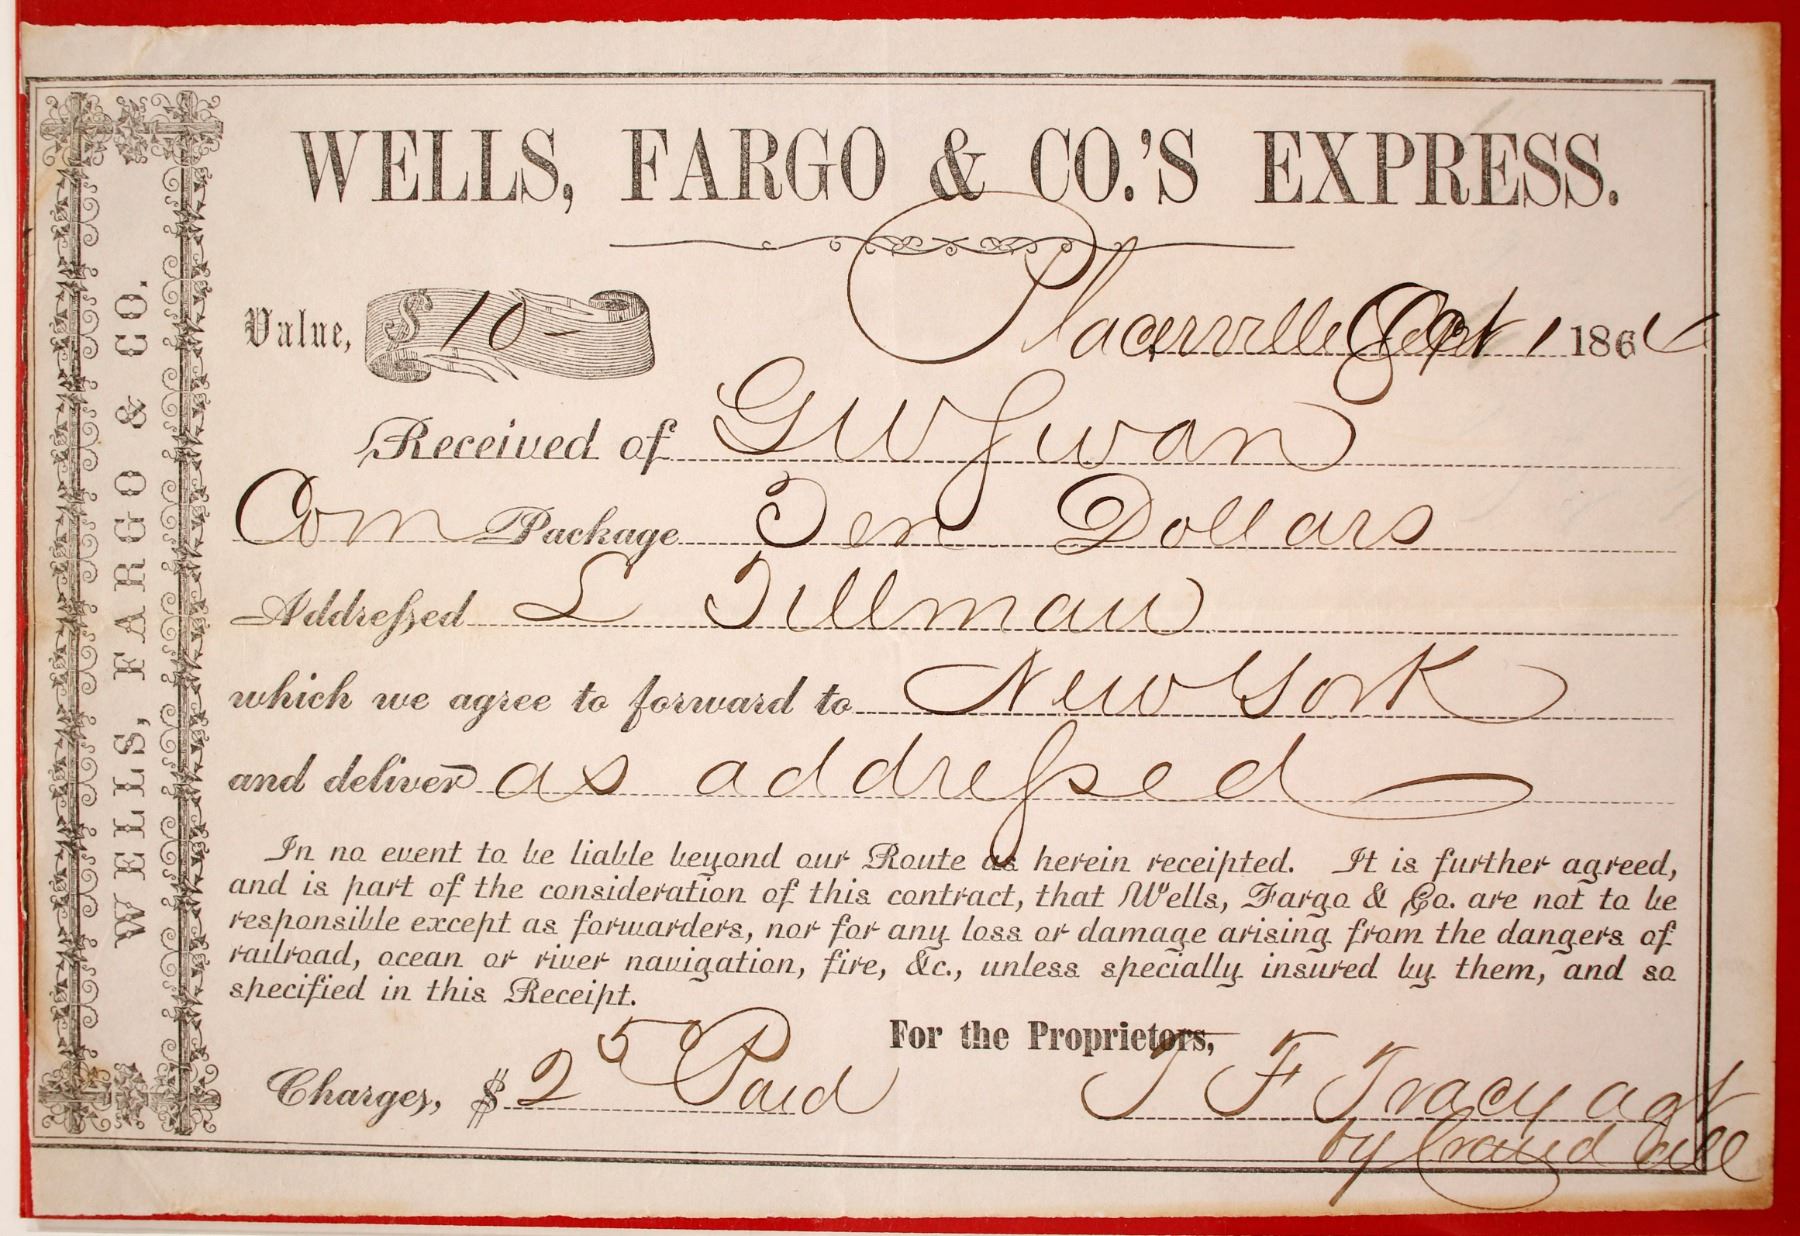 WELLS, FARGO & CO.
WELLS, FARGO & CO.'S EXPRESS.
Value, $10- Placerville Sept 1 1864
Received of G W Swan
Com Package Ten Dollars
Addressed L Tillman
which we agree to forward to New York
and deliver as addressed
In no event to be liable beyond our Route as herein receipted. It is further agreed,
and is part of the consideration of this contract, that Wells, Fargo & Co. are not to be
responsible except as forwarders, nor for any loss or damage arising from the dangers of
railroad, ocean or river navigation, fire, &c., unless specially insured by them, and so
specified in this Receipt.
For the Proprietors,
Charges, $2 50 Paid T F Tracy agt
by